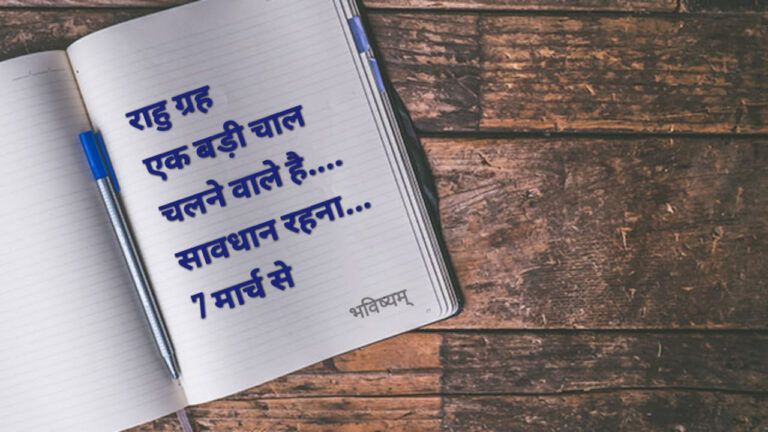 राहु ग्रह
एक बड़ी चाल
चलने वाले है....
सावधान रहना...
7 मार्च से
भविष्यम्